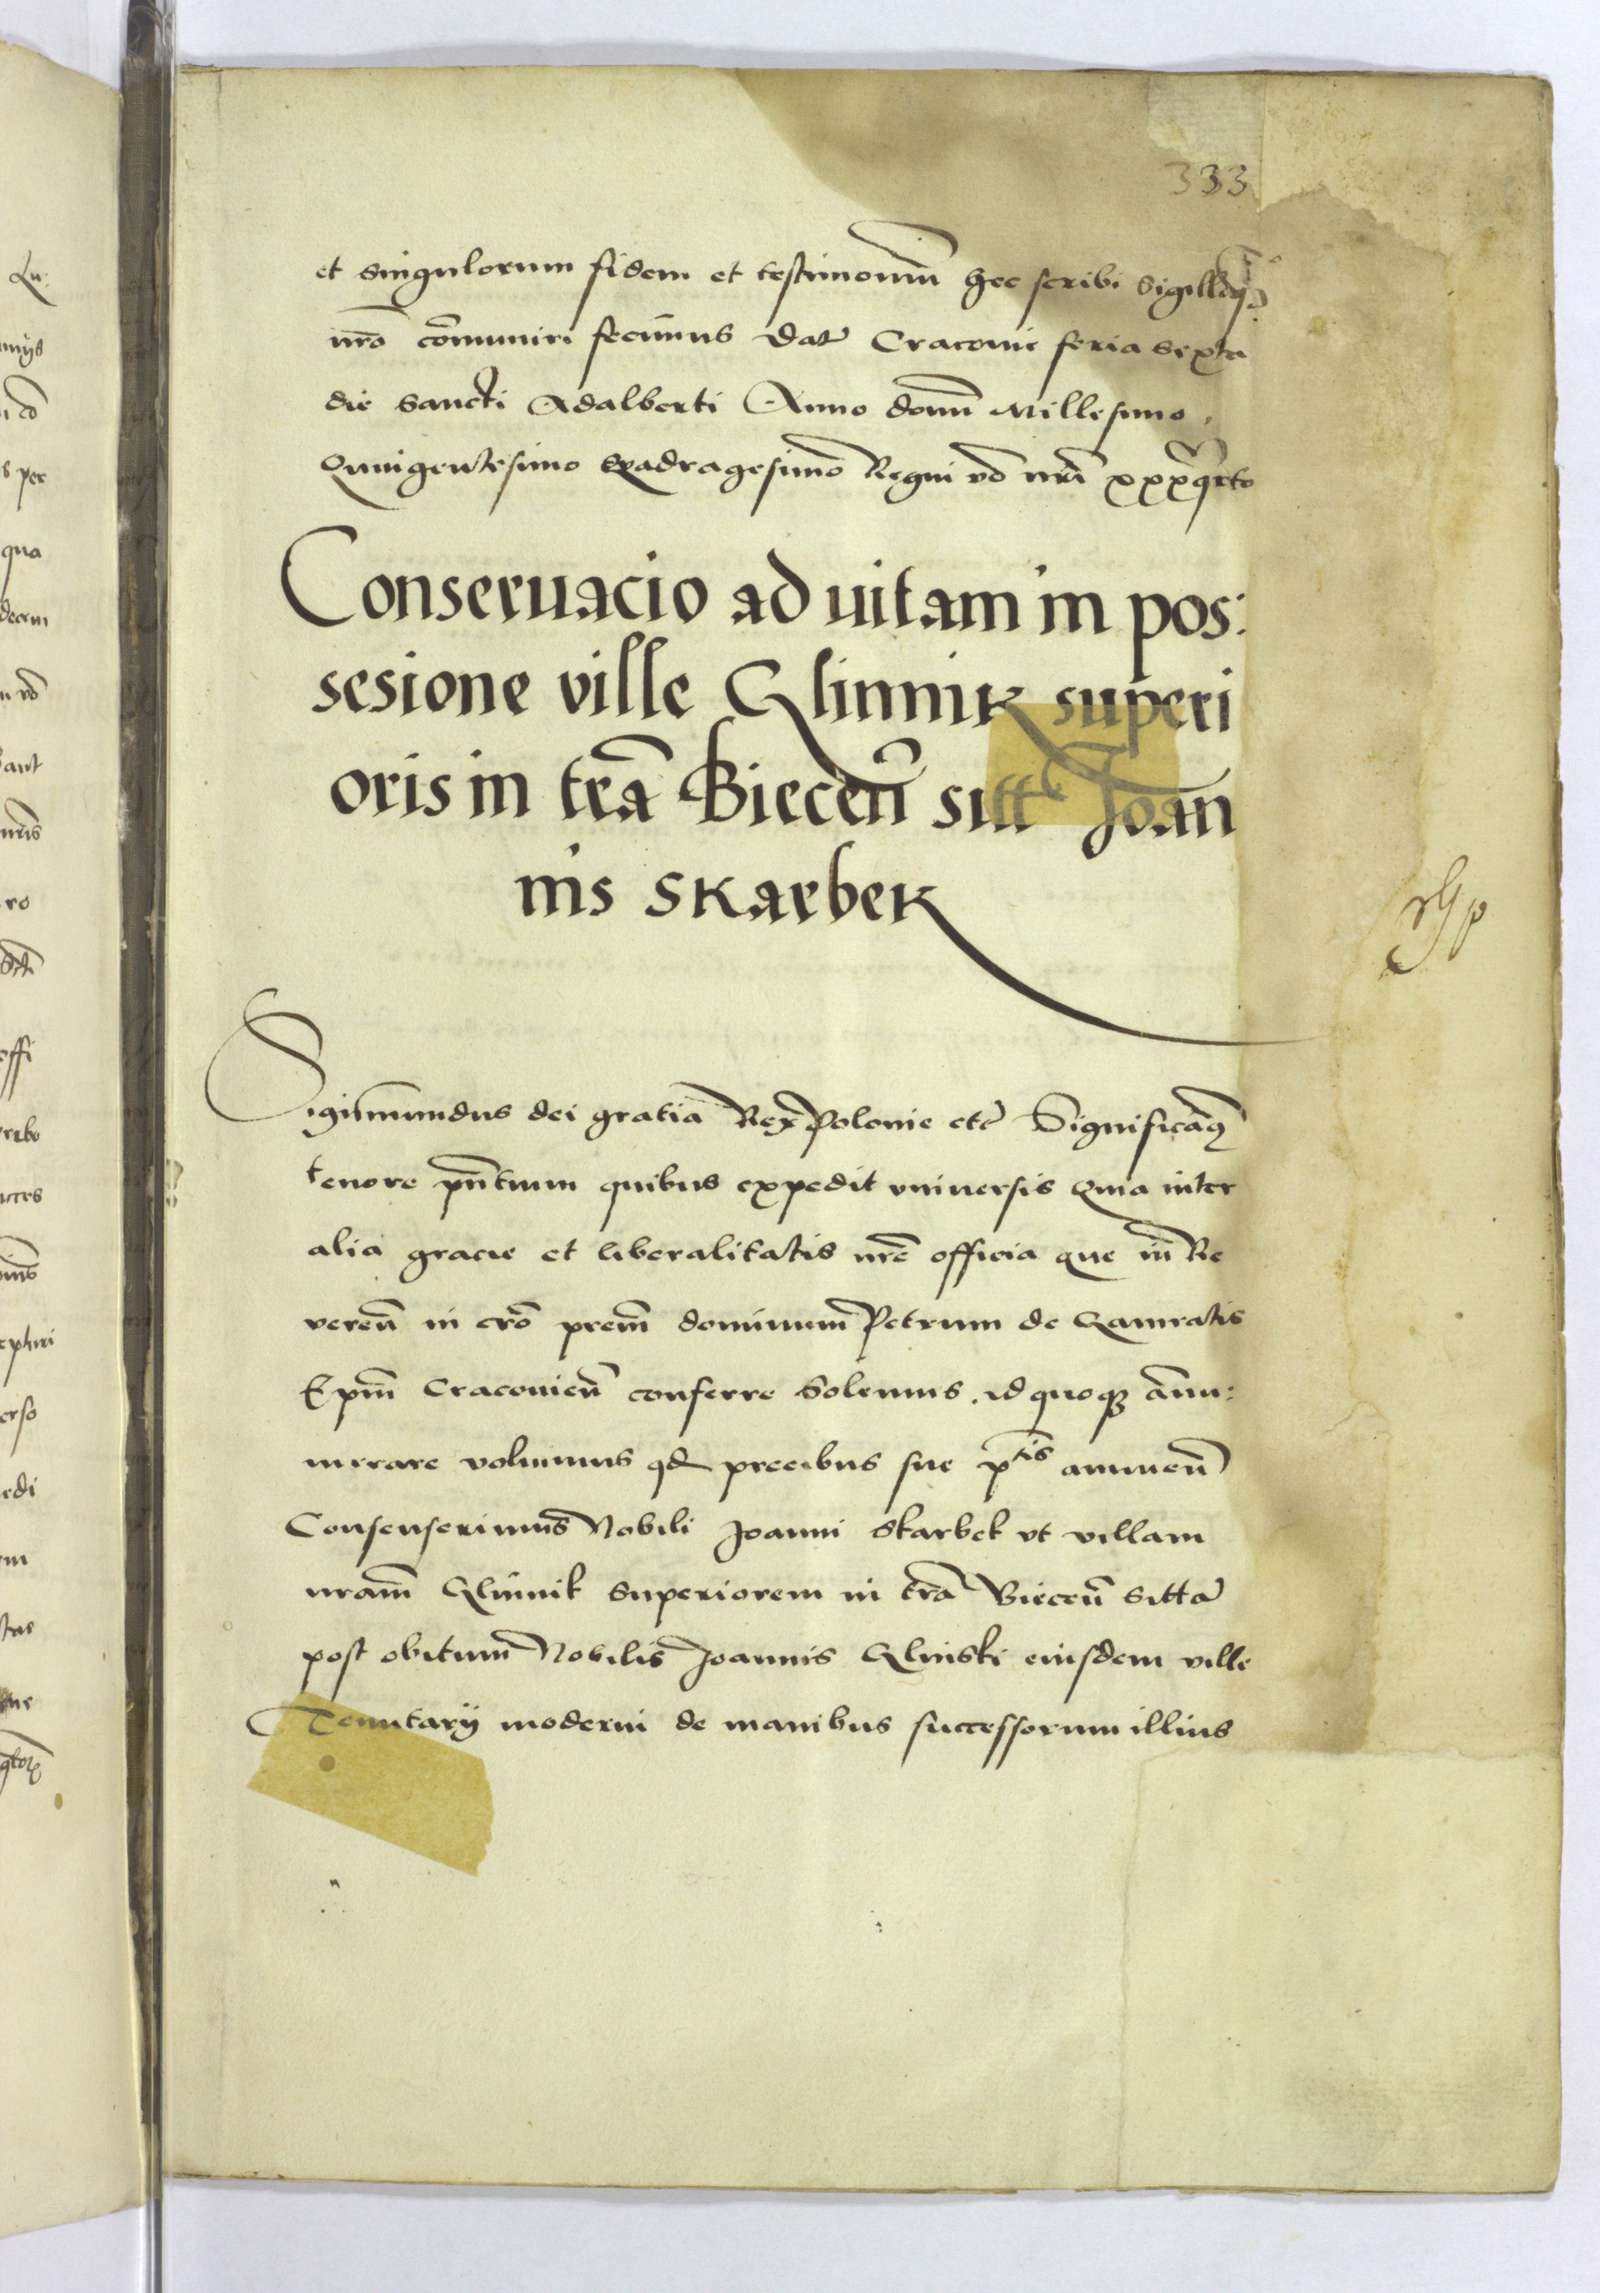 333
et singulorum fidem et testimoniũ hec scribi sigilloq3
nr̃o cõmuniri fecimus Dat̃ Cracovie feria sexta
die Sancti Adalberti Anno domĩ Millesimo
Quingentesimo Quadragesimo Regni vo nr̃i xxxqrto
Conseruacio ad uitam in pos:
sesione ville Glinnik superi
oris in tr̃a Biecen̄ sitt̃e Joan
nis Skarbek
Sigismundus dei gratia Rex Polonie etc̃ Significamus
tenore pñtium quibus expedit vniversis Quia inter
alia gracie et liberalitatis nr̃e officia que in Re
veren̄ in cr̃o prem̃ dominum Petrum de Gamratis
Epm̃ Cracovien̄ conferre Solemus. id quoq3 annu:
merare volumus qd precibus sue ptis annuen̄
Consenserimus Nobili Joanni Skarbek vt villam
nram̃ Glinnik Superiorem in tr̃a Biecen̄ sittã
post obitum Nobilis Joannis Glinski eiusdem ville
Tenutarij moderni de manibus successorum illius